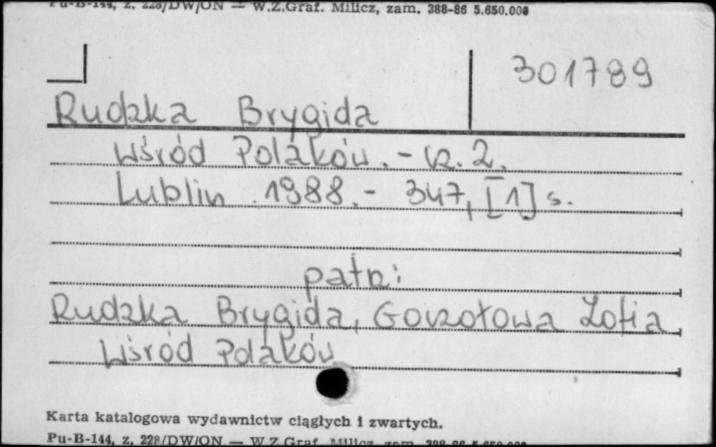 Pu-B-144, z. 228/DW/ON — W.Z.Graf. Milicz, zam. 388-86 5.650.000
301789
Rudzka Brygida
Wśród Polaków. - Cz. 2.
Lublin 1988. - 347, [1] s.
patrz:
Rudzka Brygida, Goczołowa Zofia
Wśród Polaków
Karta katalogowa wydawnictw ciągłych i zwartych.
Pu-B-144, z. 228/DW/ON — W.Z.Graf. Milicz, zam. 388-86 5.650.000